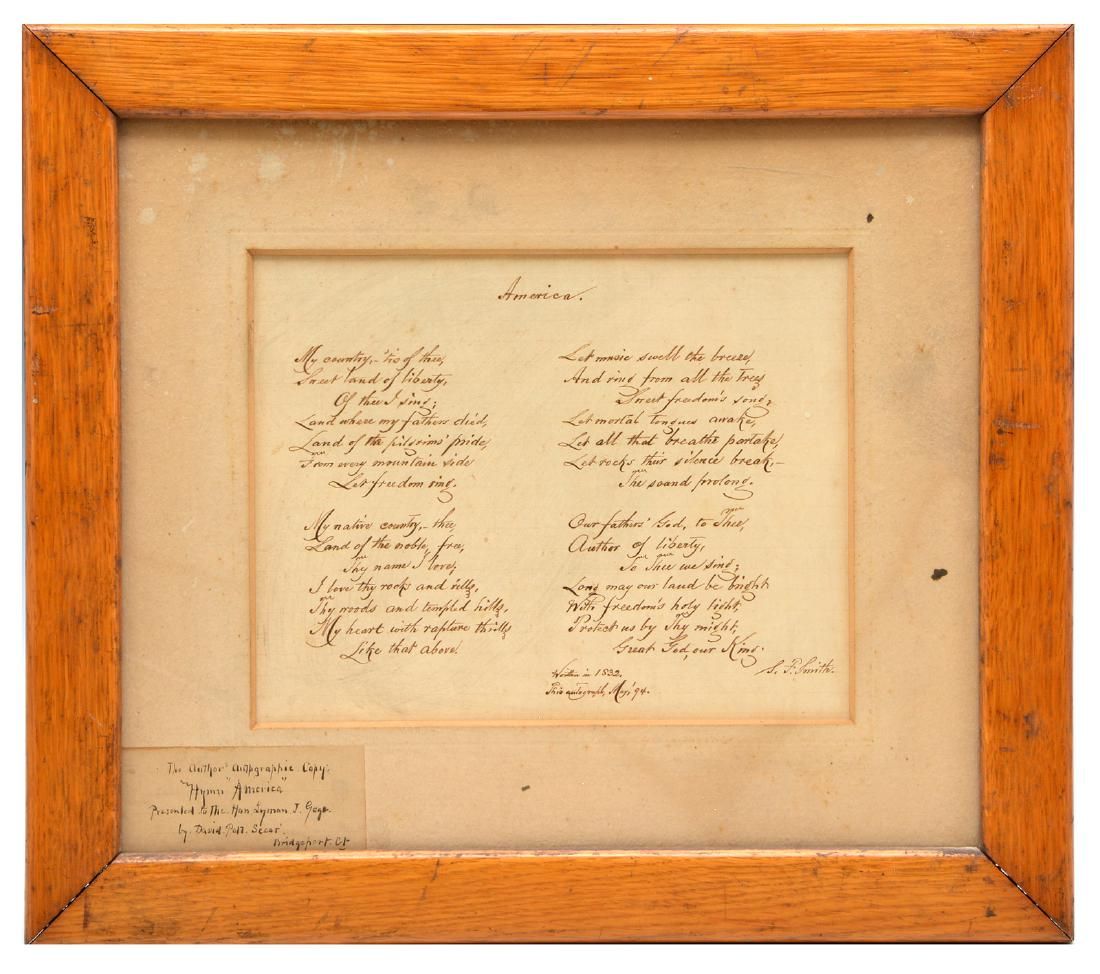 America.
My country,- 'tis of thee,
Sweet land of liberty,
Of thee I sing;
Land where my fathers died,
Land of the pilgrims' pride,
From every mountain side
Let freedom ring.
My native country,- thee,
Land of the noble, free,
Thy name I love;
I love thy rocks and rills,
Thy woods and templed hills,
My heart with rapture thrills
Like that above.
Let music swell the breeze,
And ring from all the trees
Sweet freedom's song;
Let mortal tongues awake,
Let all that breathe partake,
Let rocks their silence break,-
The sound prolong.
Our fathers' God, to Thee,
Author of liberty,
To Thee we sing;
Long may our land be bright
With freedom's holy light,
Protect us by Thy might,
Great God, our King.
S. F. Smith.
Written in 1832.
This autograph, May, '94.
The Author's Autographic Copy.
"Hymn "America"
Presented to The. Hon Lyman. J. Gage.
by. David. Secor.
Bridgeport. Ct